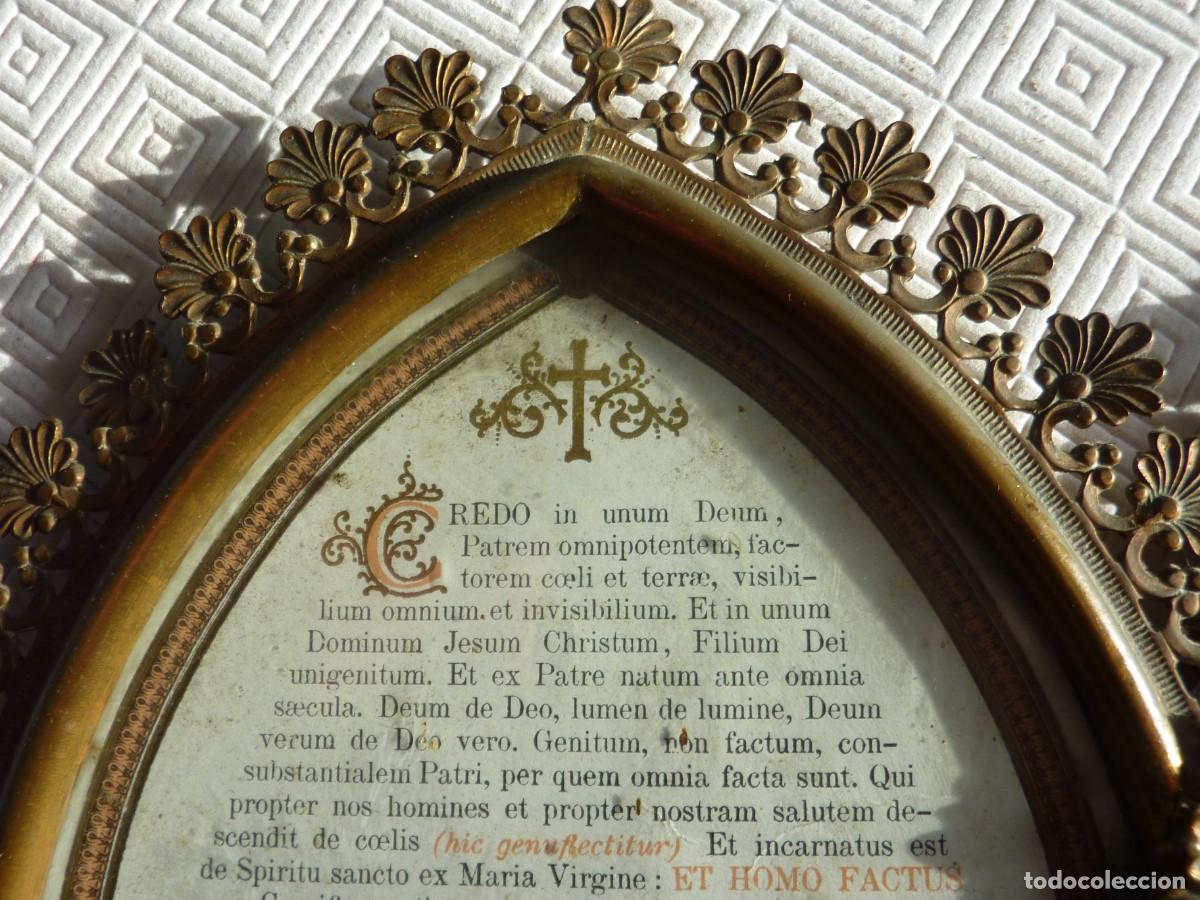 CREDO in unum Deum,
Patrem omnipotentem, fac-
torem cœli et terræ, visibi-
lium omnium et invisibilium. Et in unum
Dominum Jesum Christum, Filium Dei
unigenitum. Et ex Patre natum ante omnia
sæcula. Deum de Deo, lumen de lumine, Deum
verum de Deo vero. Genitum, non factum, con-
substantialem Patri, per quem omnia facta sunt. Qui
propter nos homines et propter nostram salutem de-
scendit de cœlis (hic genuflectitur) Et incarnatus est
de Spiritu sancto ex Maria Virgine : ET HOMO FACTUS
todocoleccion